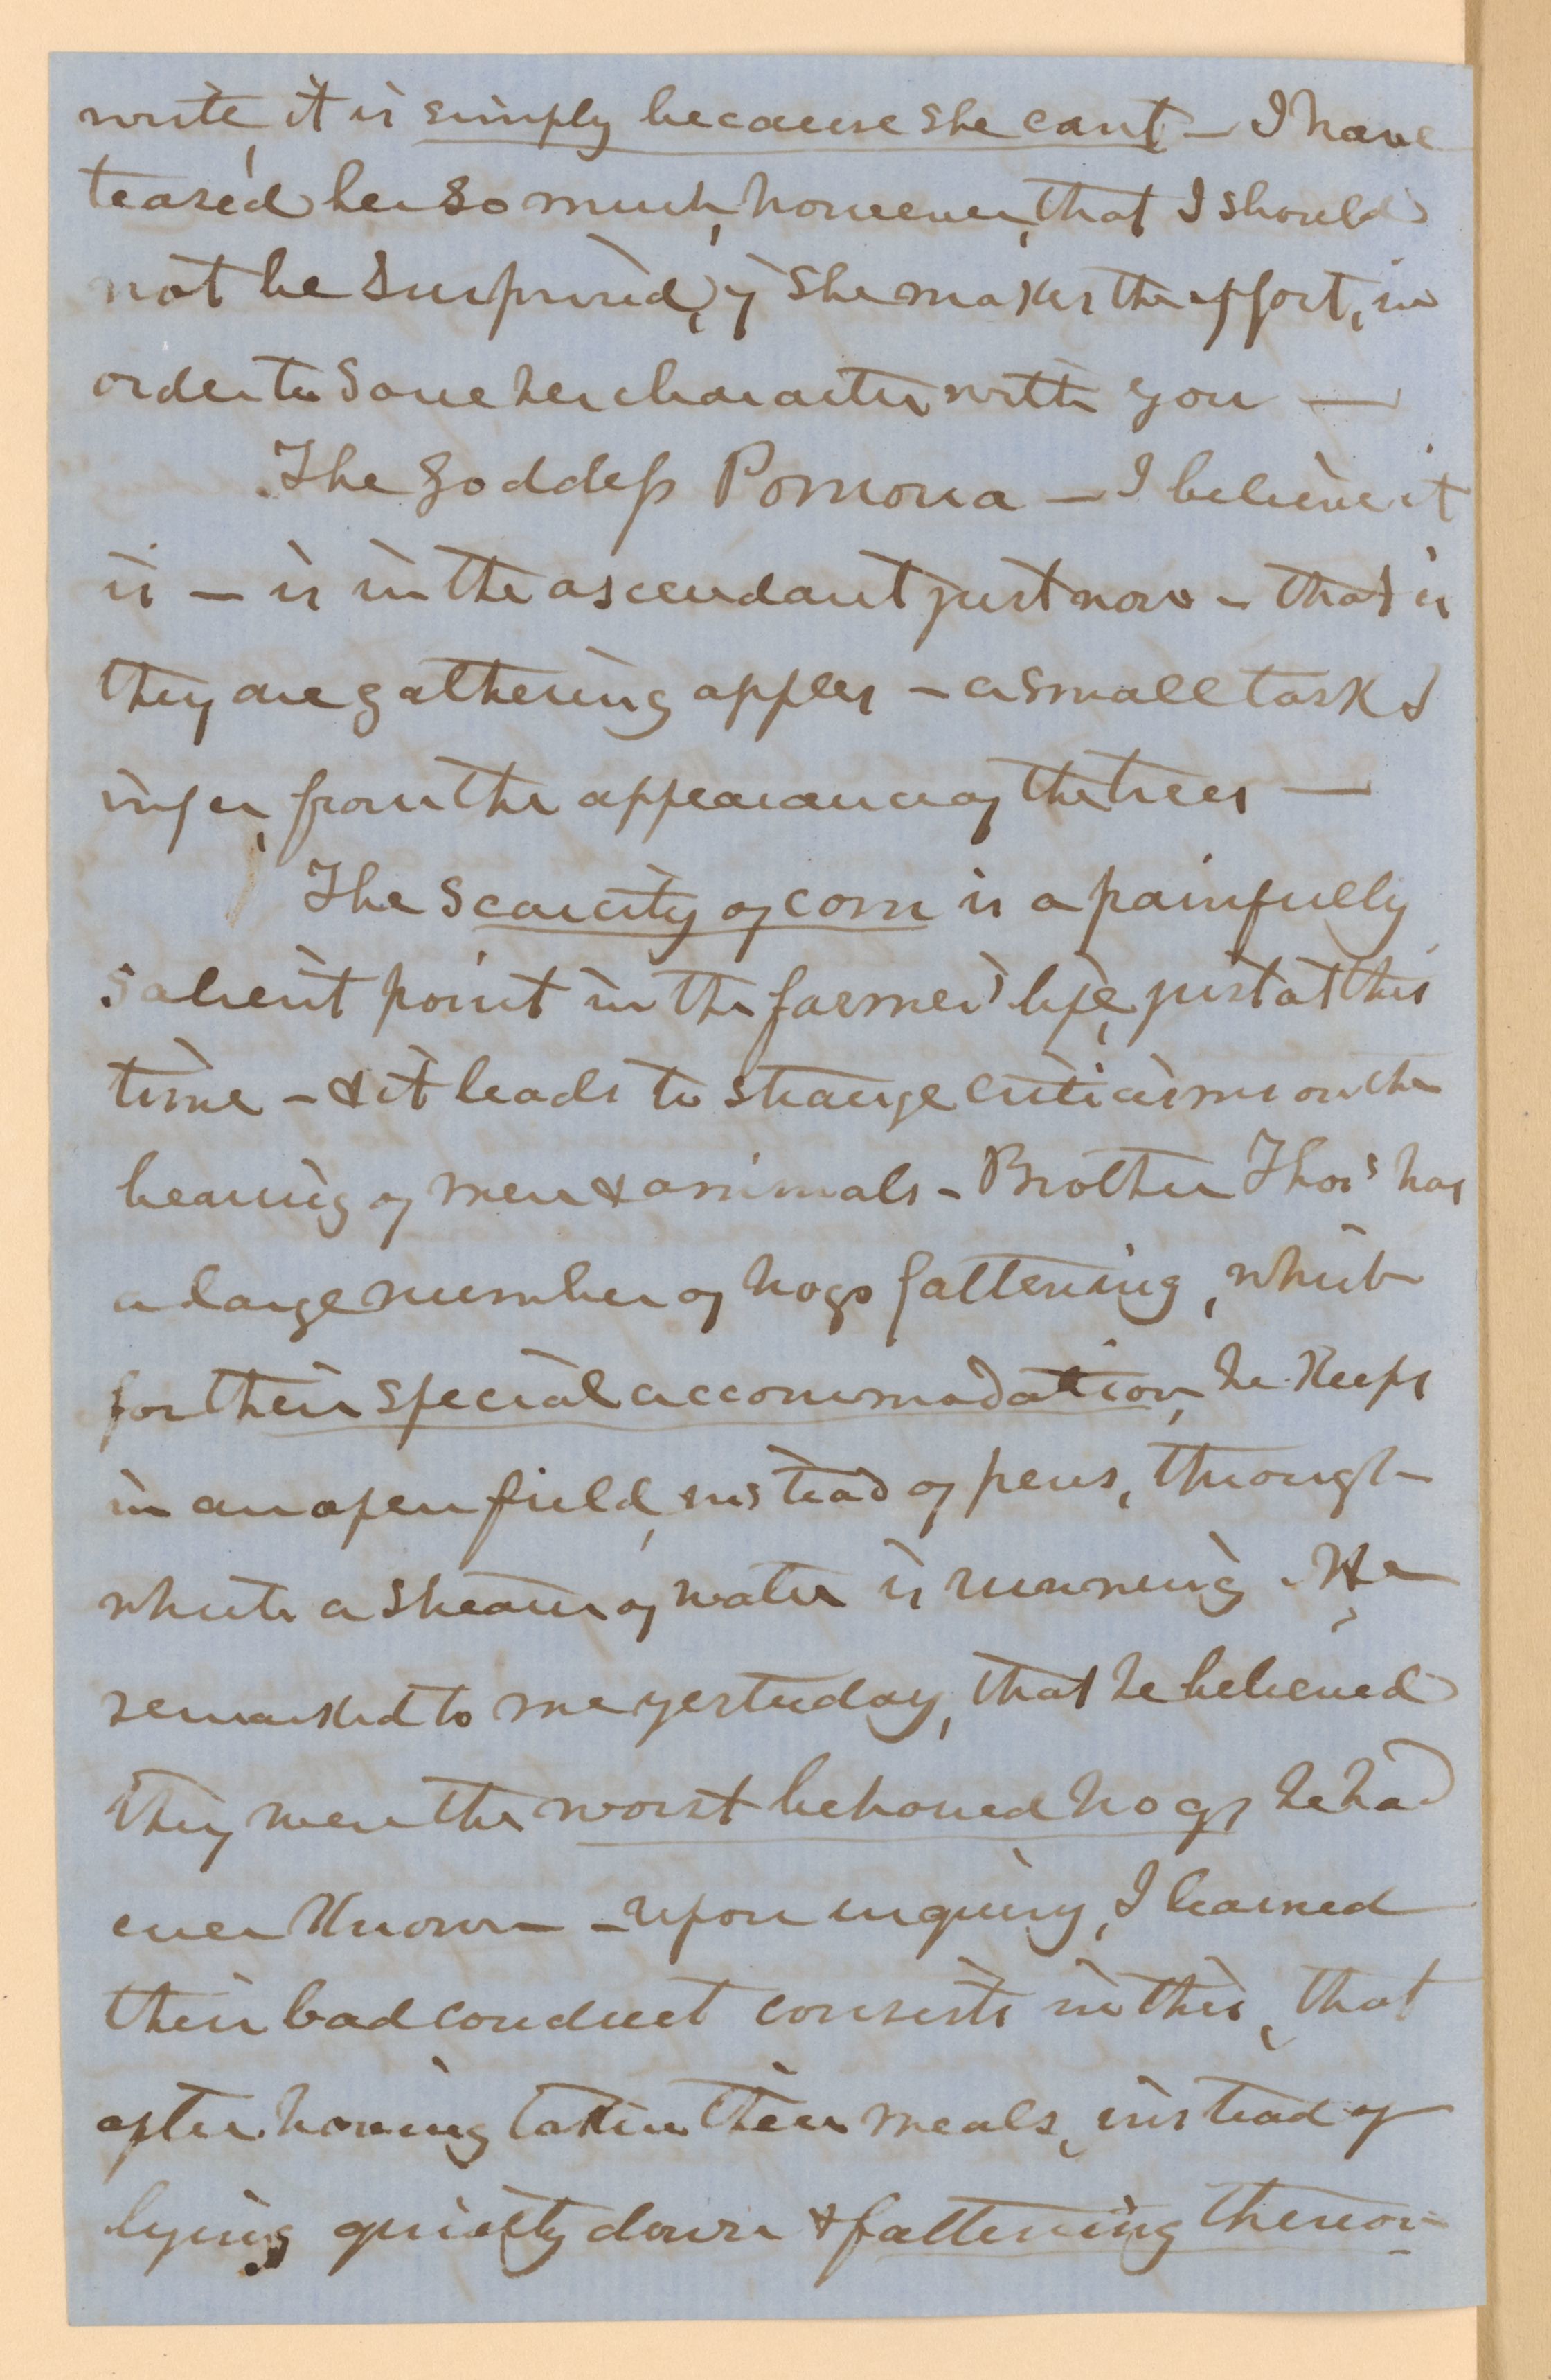 write, it is simply because she cant — I have
teased her so much, however, that I should
not be surprised, if she makes the effort, in
order to save her character with you —
The Goddess Pomona — I believe it
is — is in the ascendant just now — that is
they are gathering apples — a small task I
infer, from the appearance of the trees —
The scarcity of corn is a painfully
salient point in the farmer's life, just at this
time — & it leads to strange criticisms on the
bearing of men & animals — Brother Thos has
a large number of hogs fattening, which
for their special accommodation, he keeps
in an open field, instead of pens, through
which a stream of water is running. He
remarked to me yesterday, that he believed
they were the worst behaved hogs he had
ever known — upon inquiry, I learned
their bad conduct consists in this, that
after having taken their meals, instead of
lying quietly down & fattening thereon